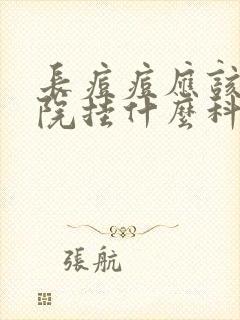 長痘痘應該
院挂什麼科
張航